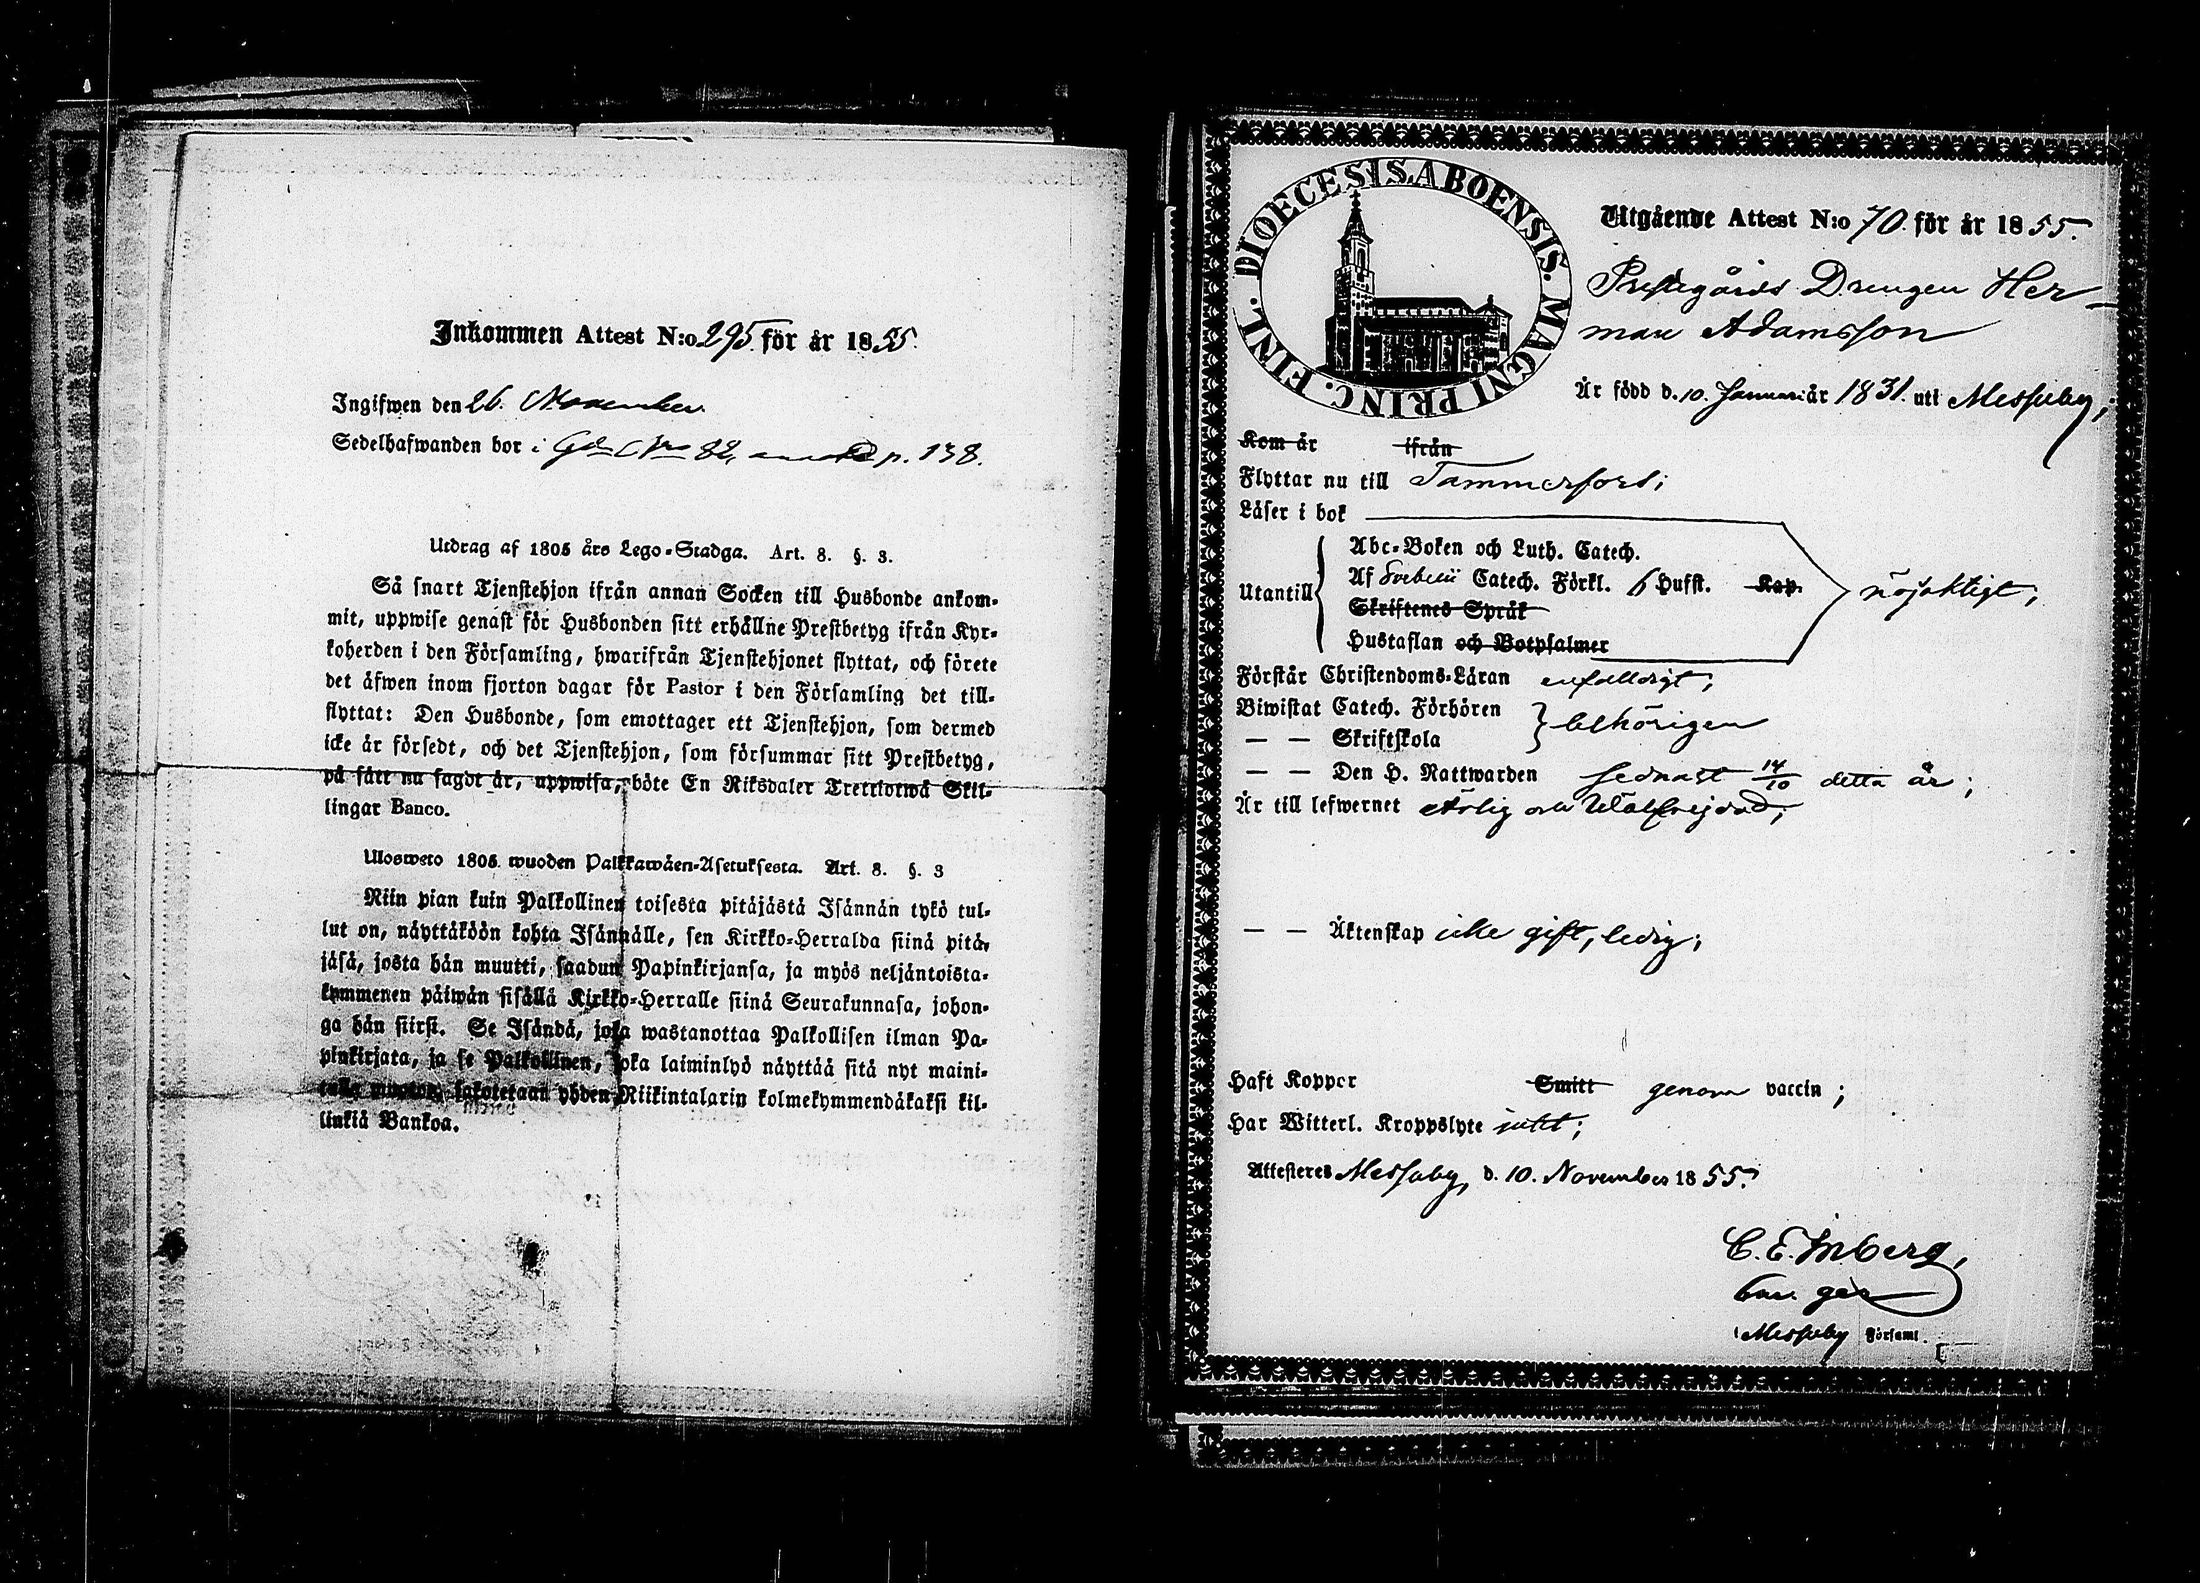 Inkommen Attest N:o 295 för år 1855.
Ingifwen den 26. November.
Sedelhafwanden bor i Gdn No 82, p. 138.
Utdrag af 1805 års Lego-Stadga. Art. 8. §. 3.
Så snart Tjenstehjon ifrån annan Socken till Husbonde ankom-
mit, uppwise genast för Husbonden sitt erhållne Prestbetyg ifrån Kyr-
koherden i den Församling, hwarifrån Tjenstehjonet flyttat, och förete
det äfwen inom fjorton dagar för Pastor i den Församling det till-
flyttat: Den Husbonde, som emottager ett Tjenstehjon, som dermed
icke är försedt, och det Tjenstehjon, som försummar sitt Prestbetyg,
på sätt nu sagdt är, uppwisa, böte En Riksdaler Trettiotwå Skil-
lingar Banco.
Ulosweto 1805 wuoden Palkkawäen-Asetuksesta. Art. 8. §. 3
Niin pian kuin Palkollinen toisesta pitäjästä Isännän tykö tul-
lut on, näyttäköön kohta Isännälle, sen Kirkko-Herralda siinä pitä-
jäsä, josta hän muutti, saadun Papinkirjansa, ja myös neljäntoista-
kymmenen päiwän sisällä Kirkko-Herralle siinä Seurakunnasa, johon-
ga hän siirsi. Se Isändä, joka wastanottaa Palkollisen ilman Pa-
pinkirjata, ja se Palkollinen, joka laiminlyö näyttää sitä nyt maini-
tulla muotoa, sakotetaan yhden Riikintalarin kolmekymmendäkaksi kil-
linkiä Bankoa.
DIOECESIS ABOENSIS. MAGNI PRINC. FINL.
Utgående Attest N:o 70. för år 1855.
Prestegårds Drengen Her-
man Adamsson
Är född d. 10. Januari år 1831. uti Messuby;
Kom år ifrån
Flyttar nu till Tammerfors;
Läser i bok
Abc-Boken och Luth. Catech.
Utantill Af Svebelii Catech. Förkl. 6 Hufst. Kap. nöjaktigt;
Skriftenes Språk
Hustaflan och Botpsalmer
Förstår Christendoms-Läran enfalldigt;
Biwistat Catech. Förhören
— — Skriftskola behörigen
— — Den H. Nattwarden sednast 14/10 detta år;
Är till lefwernet ärlig och wälfrejdad;
— — Äktenskap icke gift, ledig;
Haft Koppor Smitt genom vaccin;
Har Witterl. Kroppslyte intet;
Attesteres Messuby, d. 10. November 1855.
C. E. Inberg,
i Messuby Församl.